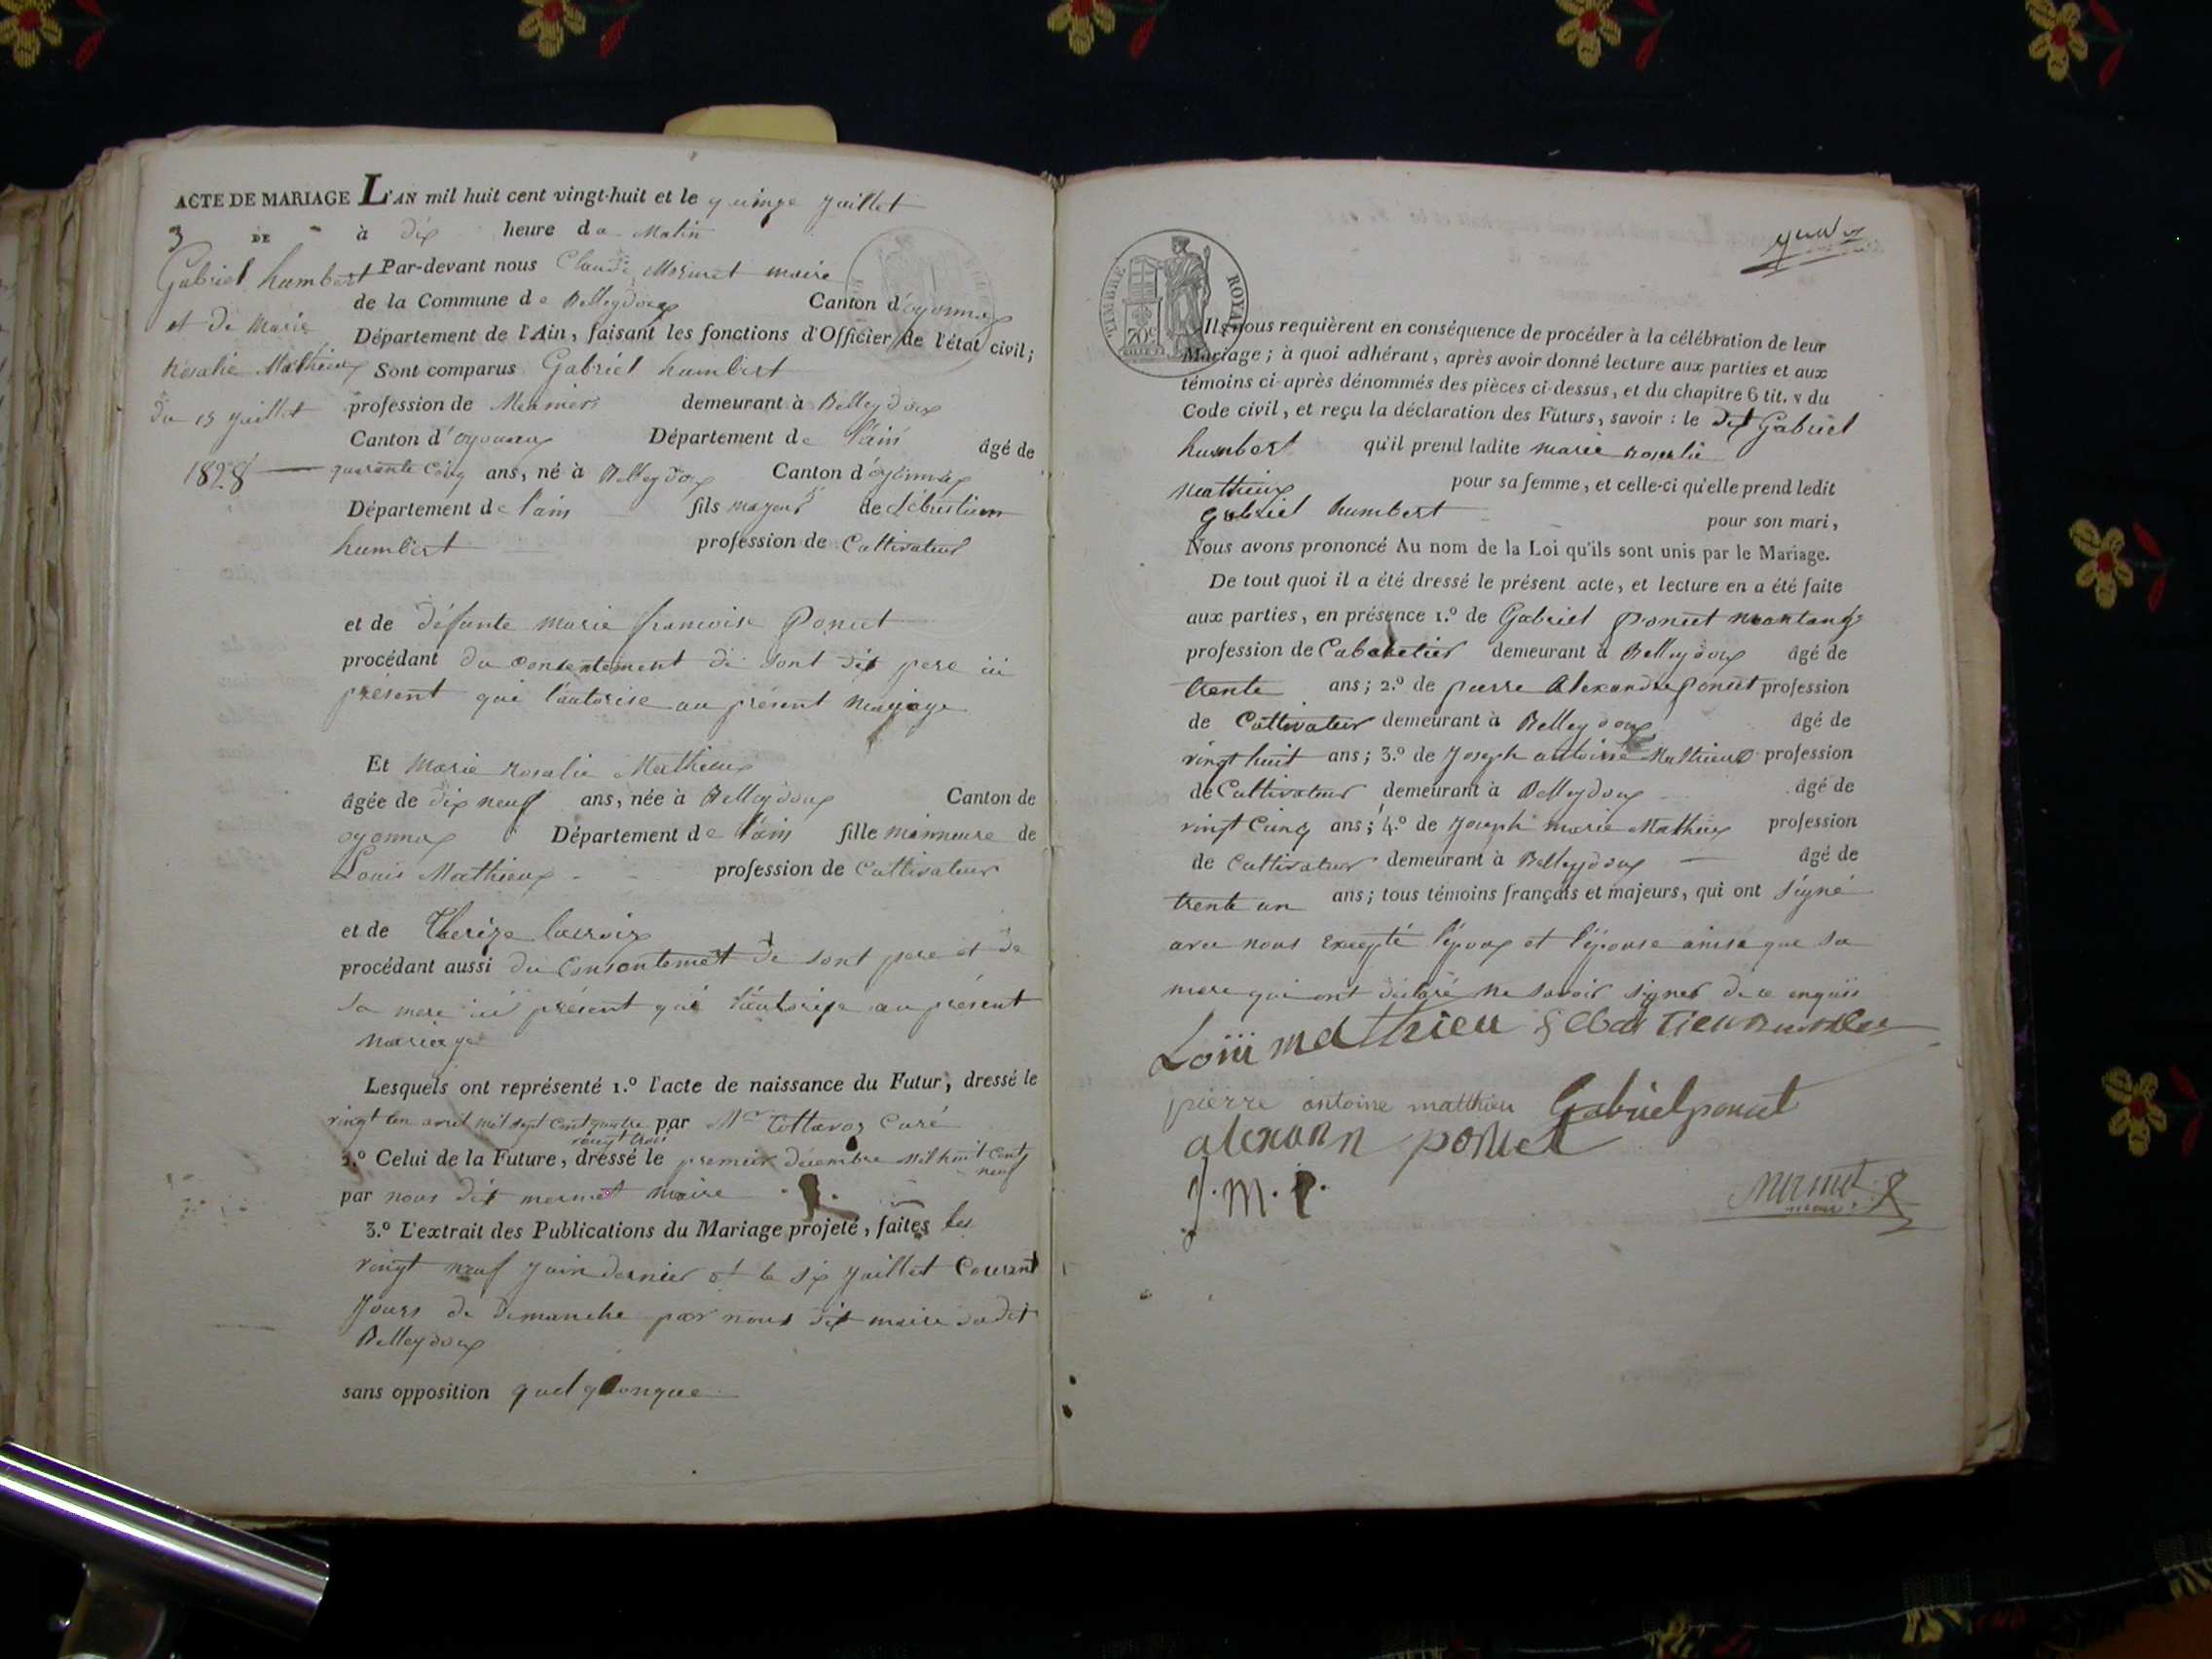 ACTE DE MARIAGE L'AN mil huit cent vingt-huit et le quinze juillet
3 DE à dix heure du Matin
Gabriel humbert Par-devant nous Claude Mermet maire
de la Commune de Belleydoux Canton d'oyonnax
et de Marie Département de l'Ain, faisant les fonctions d'Officier de l'état civil;
Rosalie Mathieux Sont comparus Gabriel humbert
du 15 juillet profession de Meunier demeurant à Belleydoux
Canton d'oyonnax Département de l'ain âgé de
1828 quarante cinq ans, né à Belleydoux Canton d'oyonnax
Département de l'ain fils mayeur de Sébastien
humbert profession de Cultivateur
et de défunte marie francoise Poncet
procédant du consentement de sont dit pere ici
présent qui l'autorise au présent mariage
Et Marie rosalie Mathieux
âgée de dix neuf ans, née à Belleydoux Canton de
oyonnax Département de l'ain fille minneure de
Louis Mathieux profession de Cultivateur
et de Therèze lacroix
procédant aussi du Consentement de sont pere et de
sa mere ici présent qui l'autorise au présent
mariage
Lesquels ont représenté 1.º l'acte de naissance du Futur, dressé le
vingt un avril mil sept cent quatre par Mre Tottavoz Curé
vingt trois
2.º Celui de la Future, dressé le premier décembre mil huit Cent
neuf
par nous dit mermet maire
3.º L'extrait des Publications du Mariage projeté, faites les
vingt neuf juin dernier et le six juillet Courant
jours de dimanche par nous dit maire dudit
Belleydoux
sans opposition quelquonque
TIMBRE ROYAL
70 c
Ils nous requièrent en conséquence de procéder à la célébration de leur
Mariage; à quoi adhérant, après avoir donné lecture aux parties et aux
témoins ci-après dénommés des pièces ci-dessus, et du chapitre 6 tit. v du
Code civil, et reçu la déclaration des Futurs, savoir: le dit Gabriel
humbert qu'il prend ladite marie rosalie
Mathieux pour sa femme, et celle-ci qu'elle prend ledit
Gabriel humbert pour son mari,
Nous avons prononcé Au nom de la Loi qu'ils sont unis par le Mariage.
De tout quoi il a été dressé le présent acte, et lecture en a été faite
aux parties, en présence 1.º de Gabriel Poncet
profession de Cabaretier demeurant à Belleydoux âgé de
trente ans; 2.º de pierre Alexandre poncet profession
de Cultivateur demeurant à Belleydoux âgé de
vingt huit ans; 3.º de Joseph antoine Mathieux profession
de Cultivateur demeurant à Belleydoux âgé de
vingt Cinq ans; 4.º de Joseph marie Mathieux profession
de Cultivateur demeurant à Belleydoux âgé de
trente un ans; tous témoins français et majeurs, qui ont signé
avec nous excepté l'époux et l'épouse ainsi que sa
mere qui ont déclaré ne savoir signer de ce enquis
Loüi mathieu Sebastien humbert
pierre antoine matthieu Gabriel poncet
alexann poncet
J. M. P.
Mermet
maire